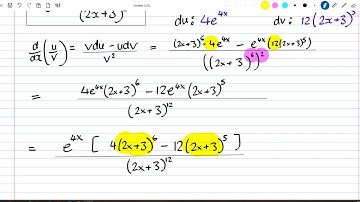 (2x+3)
du: 4e^{4x} dv: 12(2x+3)^5
d/dx (u/v) = (vdu - udv)/v^2 = ((2x+3)^6 · 4e^{4x} - e^{4x}(12(2x+3)^5))/((2x+3)^6)^2
= (4e^{4x}(2x+3)^6 - 12e^{4x}(2x+3)^5)/(2x+3)^{12}
= e^{4x} [ 4(2x+3)^6 - 12(2x+3)^5 ]/(2x+3)^{12}